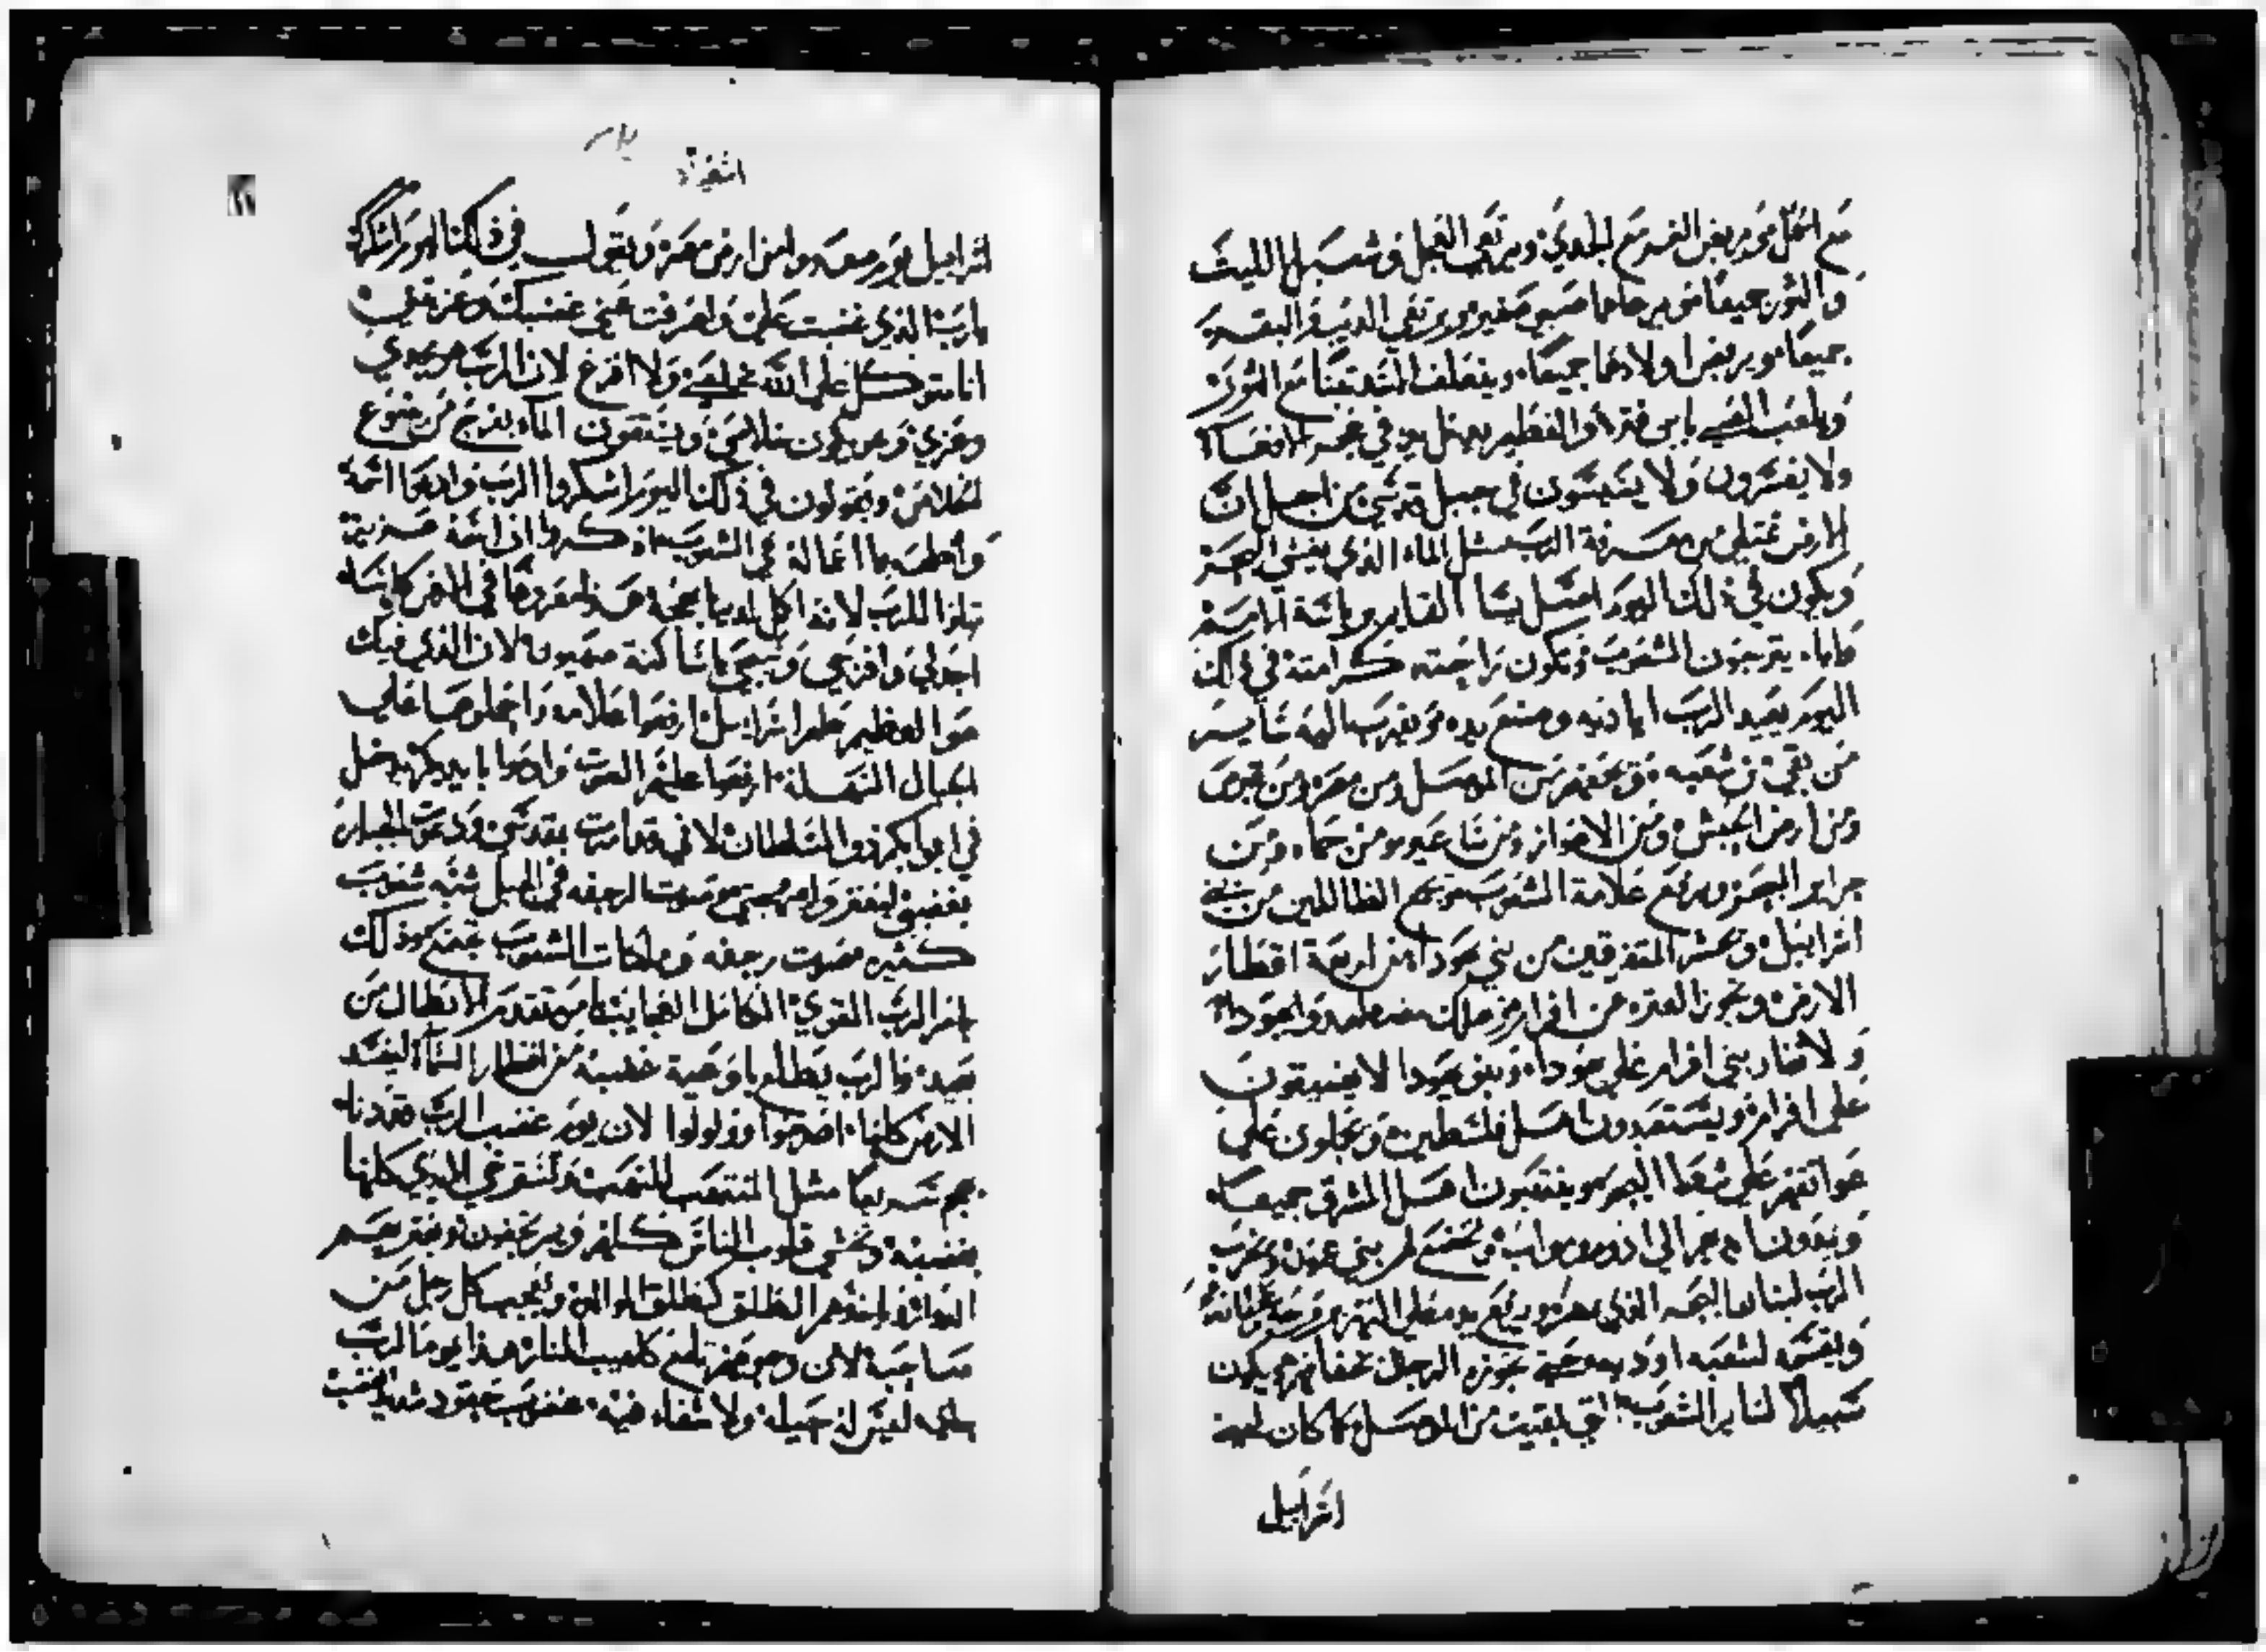 مع الحمل ويربض النمر مع الجدي ويرتعي العجل وشبل الليث
والثور جميعًا ويرعاهما صبي صغير ويرتعي الدب والبقر
جميعًا ويربض اولادهما جميعًا ويعتلف الاسد تبنا مع الثور
ويلعب الصبي باس فترا والفطيم يدخل يده في جحر الافعا
ولا يفسدون ولا يسيئون في جبل قدسي من اجل ان
الارض تمتلي من معرفة الرب مثل الماء الذي يغشي البحر
ويكون في ذلك اليوم اصل يسا القايم وراية الامم
واياه يترجون الشعوب وتكون راحته كرامته في ذلك
اليوم يعيد الرب ايادنيه وصنع يده ويقرب اليه ساير
من بقي من شعبه وتخفهم من الموصل ومن مصر ومن قبرص
ومن ارض الحبش ومن الاهواز ومن شاعير ومن حماه ومن
جزاير البحر ويرفع علامة الشعوب ويجمع الظالمين من بني
اسراييل ويحشر المتفرقين من بني يهودا من اربعة اقطار
الارض ويجوز العتره من افرام ملك مضطهدوا يهودا
ولا تضار بني افرام علي يهودا وبني يهودا لا يضيقون
علي افرام ويستعدون اهل فلسطين ويجلون علي
عواتقهم علي شط البحر وينتهبون اهل المشرق جميعا
ويمدون ايديهم الي ادوم ومواب وتسمع لهم بني عمون ويخرب
الرب لسان البحر الذي بمصر ويرفع يده علي النهر
ويقسمه لسبعه اوديه حتي يجوزه الرجل بخفافهم ويكون
سبيلاً لساير الشعوب التي بقيت من الموصل كما كان لبني
اسراييل
اشعيا
اسراييل يوم صعدوا من ارض مصر وتقول في ذلك اليوم اشكرك
يارب الذي غضبت علي واصرفت عني غضبك وعزيتني
انا متوكل علي الله مخلصي ولا افزع لان الرب هو مجدي
وعزي وهو يكون خلاصي ويستقون الماء بفرح من ينبوع
الخلاص ويقولون في ذلك اليوم اشكروا الرب وادعوا اسمه
واظهروا اعماله في الشعوب اذكروا ان اسمه عزيز
رتلوا للرب لانه اكل اعاجيبه هذا معروفًا في الارض كلها
اجدلي وافرحي وسبحي ياساكنة صهيون لان الذي فيك
هو العظيم طهر اسراييل ارفعوا علامه واجعلوها علي
الجبال السهله ارفعوا عليهم الصوت وادعوا بايديكم يدخل
في ابوابكم ذوا السلطان لاني قد امرت بقدسي ودعوت الجبابره
بغضبي ليفتخروا صوت الرجفه في الجبل شبه شعوب
كثيره صوت رجفه وملكات الشعوب تجتمع وذلك
بامر الرب القوي الكامل يتقدم الابطال من
بعيد والرب يطلع باوعية غضبه من اقطار السماء ليفسد
الارض كلها اصرخوا وولولوا لان يوم غضب الرب قد دنا
يجي سريعًا مثل المنتهب للنهب ولتسترخي الايدي كلها
بغضبه وتخشي قلوب الناس كلهم ويرتجفون وتعتريهم
الدوار وياخذهم الطلق كطلق الوالده ويعجب كل رجل من
صاحبه لان وجوههم تلمع كلهيب النار هذا يوم الرب
ياتي ليس له حيله ولا شفاء فيه غضوب حقود شديد الغضب